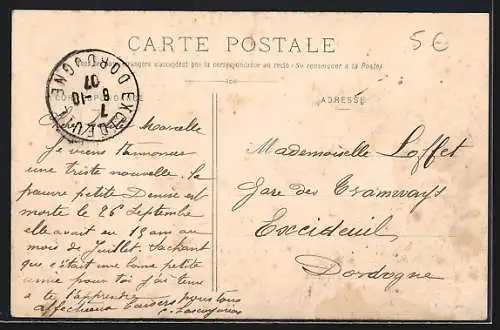 CARTE POSTALE
5€
Tous les pays étrangers n'acceptent pas la correspondance au recto - Se renseigner à la Poste
CORRESPONDANCE
ADRESSE
EXCIDEUIL
DORDOGNE
7
8-10
07
Marcelle
Je viens t'annoncer
une triste nouvelle. la
pauvre petite Denise est
morte le 26 Septembre
elle avait eu 19 ans au
mois de Juillet. Sachant
que c'était une bonne petite
amie pour toi j'ai tenu
a te l'apprendre
affectueux baisers pour tous
Mademoiselle Loffet
Gare des Tramways
Excideuil
Dordogne